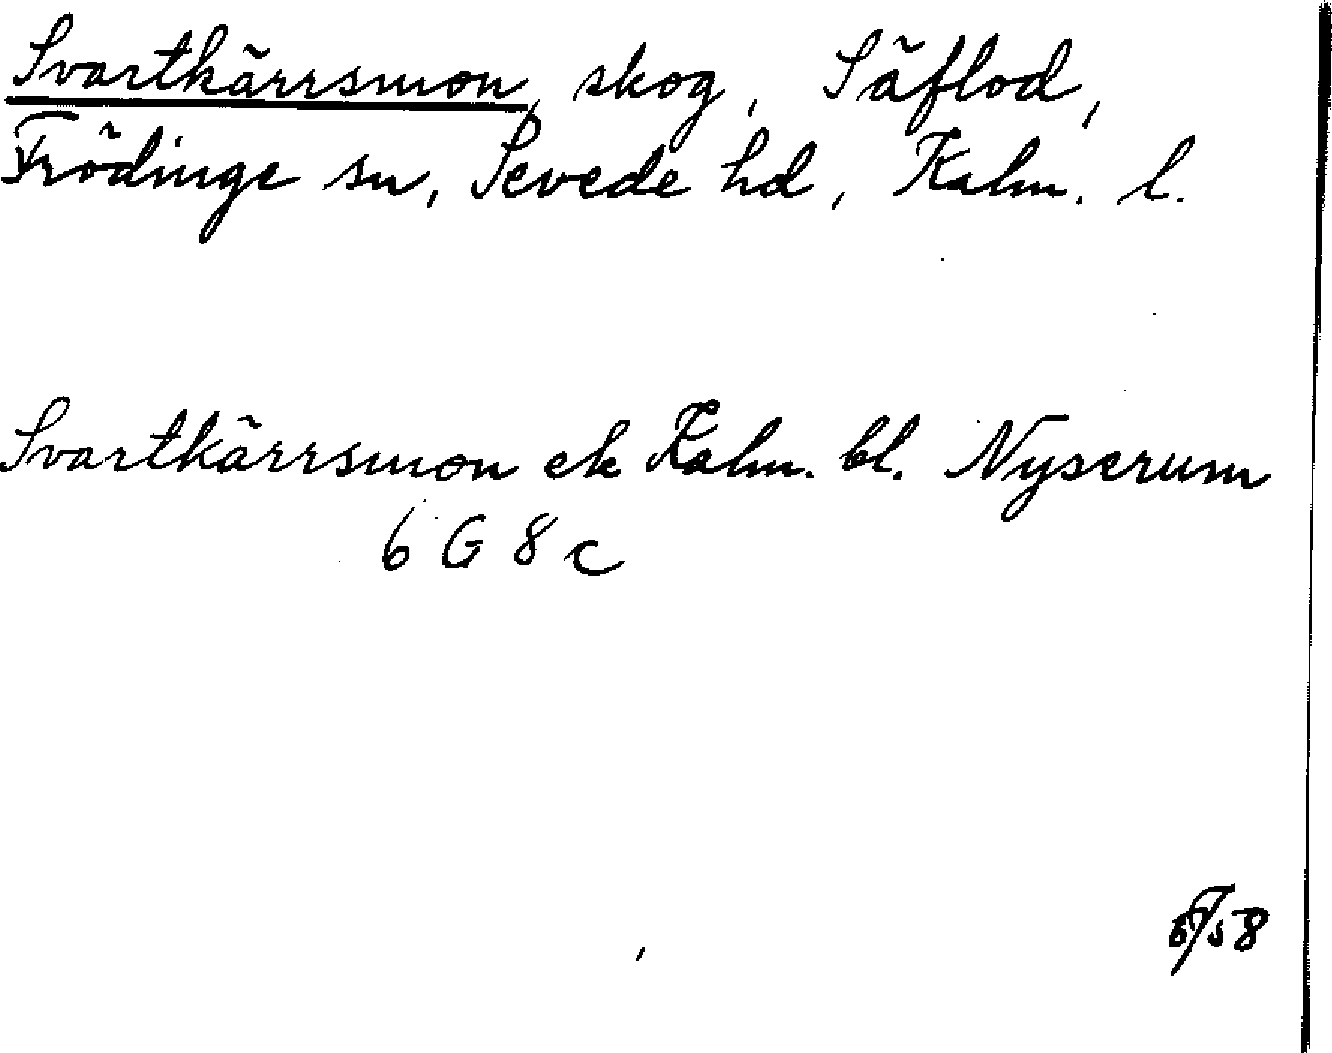 Svartkärrsmon, skog, Säflod,
Frödinge sn, Sevede hd, Kalm. l.
Svartkärrsmon ek Kalm. bl. Nyserum
6 G 8 c